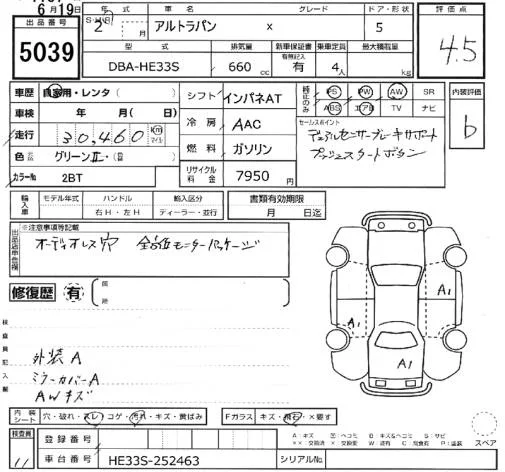 6月19日
出品番号
5039
年式 車名 グレード ドア・形状
2 月 アルトラパン X 5
型式 排気量 新車保証書 有無記入 乗車定員 最大積載量
DBA-HE33S 660 cc 有 4人 kg
評価点
4.5
車歴 自家用・レンタ( )
車検 年 月( 日)
走行 30,460 km マイル
色 グリーンⅡ・( )
カラーNo 2BT
シフト インパネAT
冷房 AAC
燃料 ガソリン
リサイクル料金 7950 円
純正のみ PS PW AW SR
ABS エアB TV ナビ
セールスポイント
デュアルセンサーブレーキサポート
プッシュスタートボタン
内装評価
b
輸入車 モデル年式 ハンドル 輸入区分
右H・左H ディーラー・並行
書類有効期限
月 日迄
※注意事項等記載
オーディオレス穴 全方位モニターパッケージ
修復歴 有
外装A
ミラーカバーA
AWキズ
A1
A1
A1
内装シート 穴・破れ・スレ・コゲ・汚れ・キズ・黄ばみ
Fガラス キズ・飛石・×要す
スペア
検査員
登録番号
車台番号 HE33S-252463
シリアルNo.